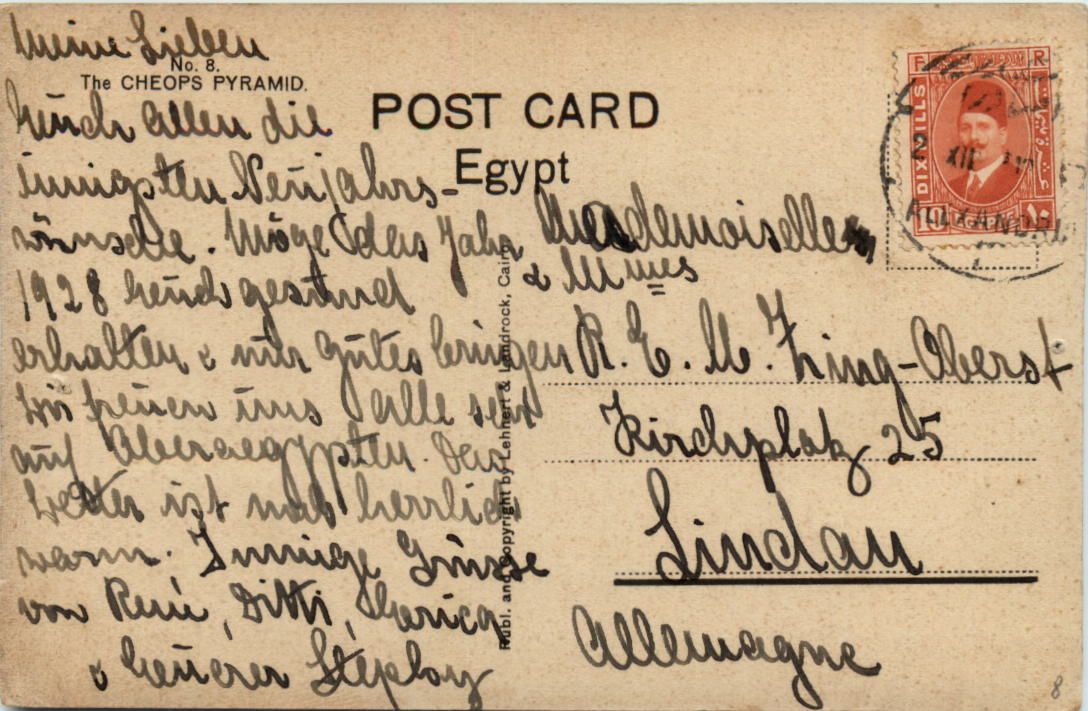 Meine Lieben
No. 8.
The CHEOPS PYRAMID.
POST CARD
Egypt
Euch allen die
innigsten Neujahrs-
wünsche. Möge das Jahr
1928 Euch gesund
erhalten & nur Gutes bringen
Wir freuen uns alle sehr
auf Oberaegypten. Das
Wetter ist noch herrlich
warm. Innige Grüsse
von René, Ditti,
& Euerer
Publ. and Copyright by Lehnert & Landrock, Cairo
Mademoiselle
& Mmes
R. E. M. Zing-Oberst
Kirchplatz 25
Lindau
Allemagne
F R
DIX MILLS
10 ١٠
2 XII
ALEXANDRI
8